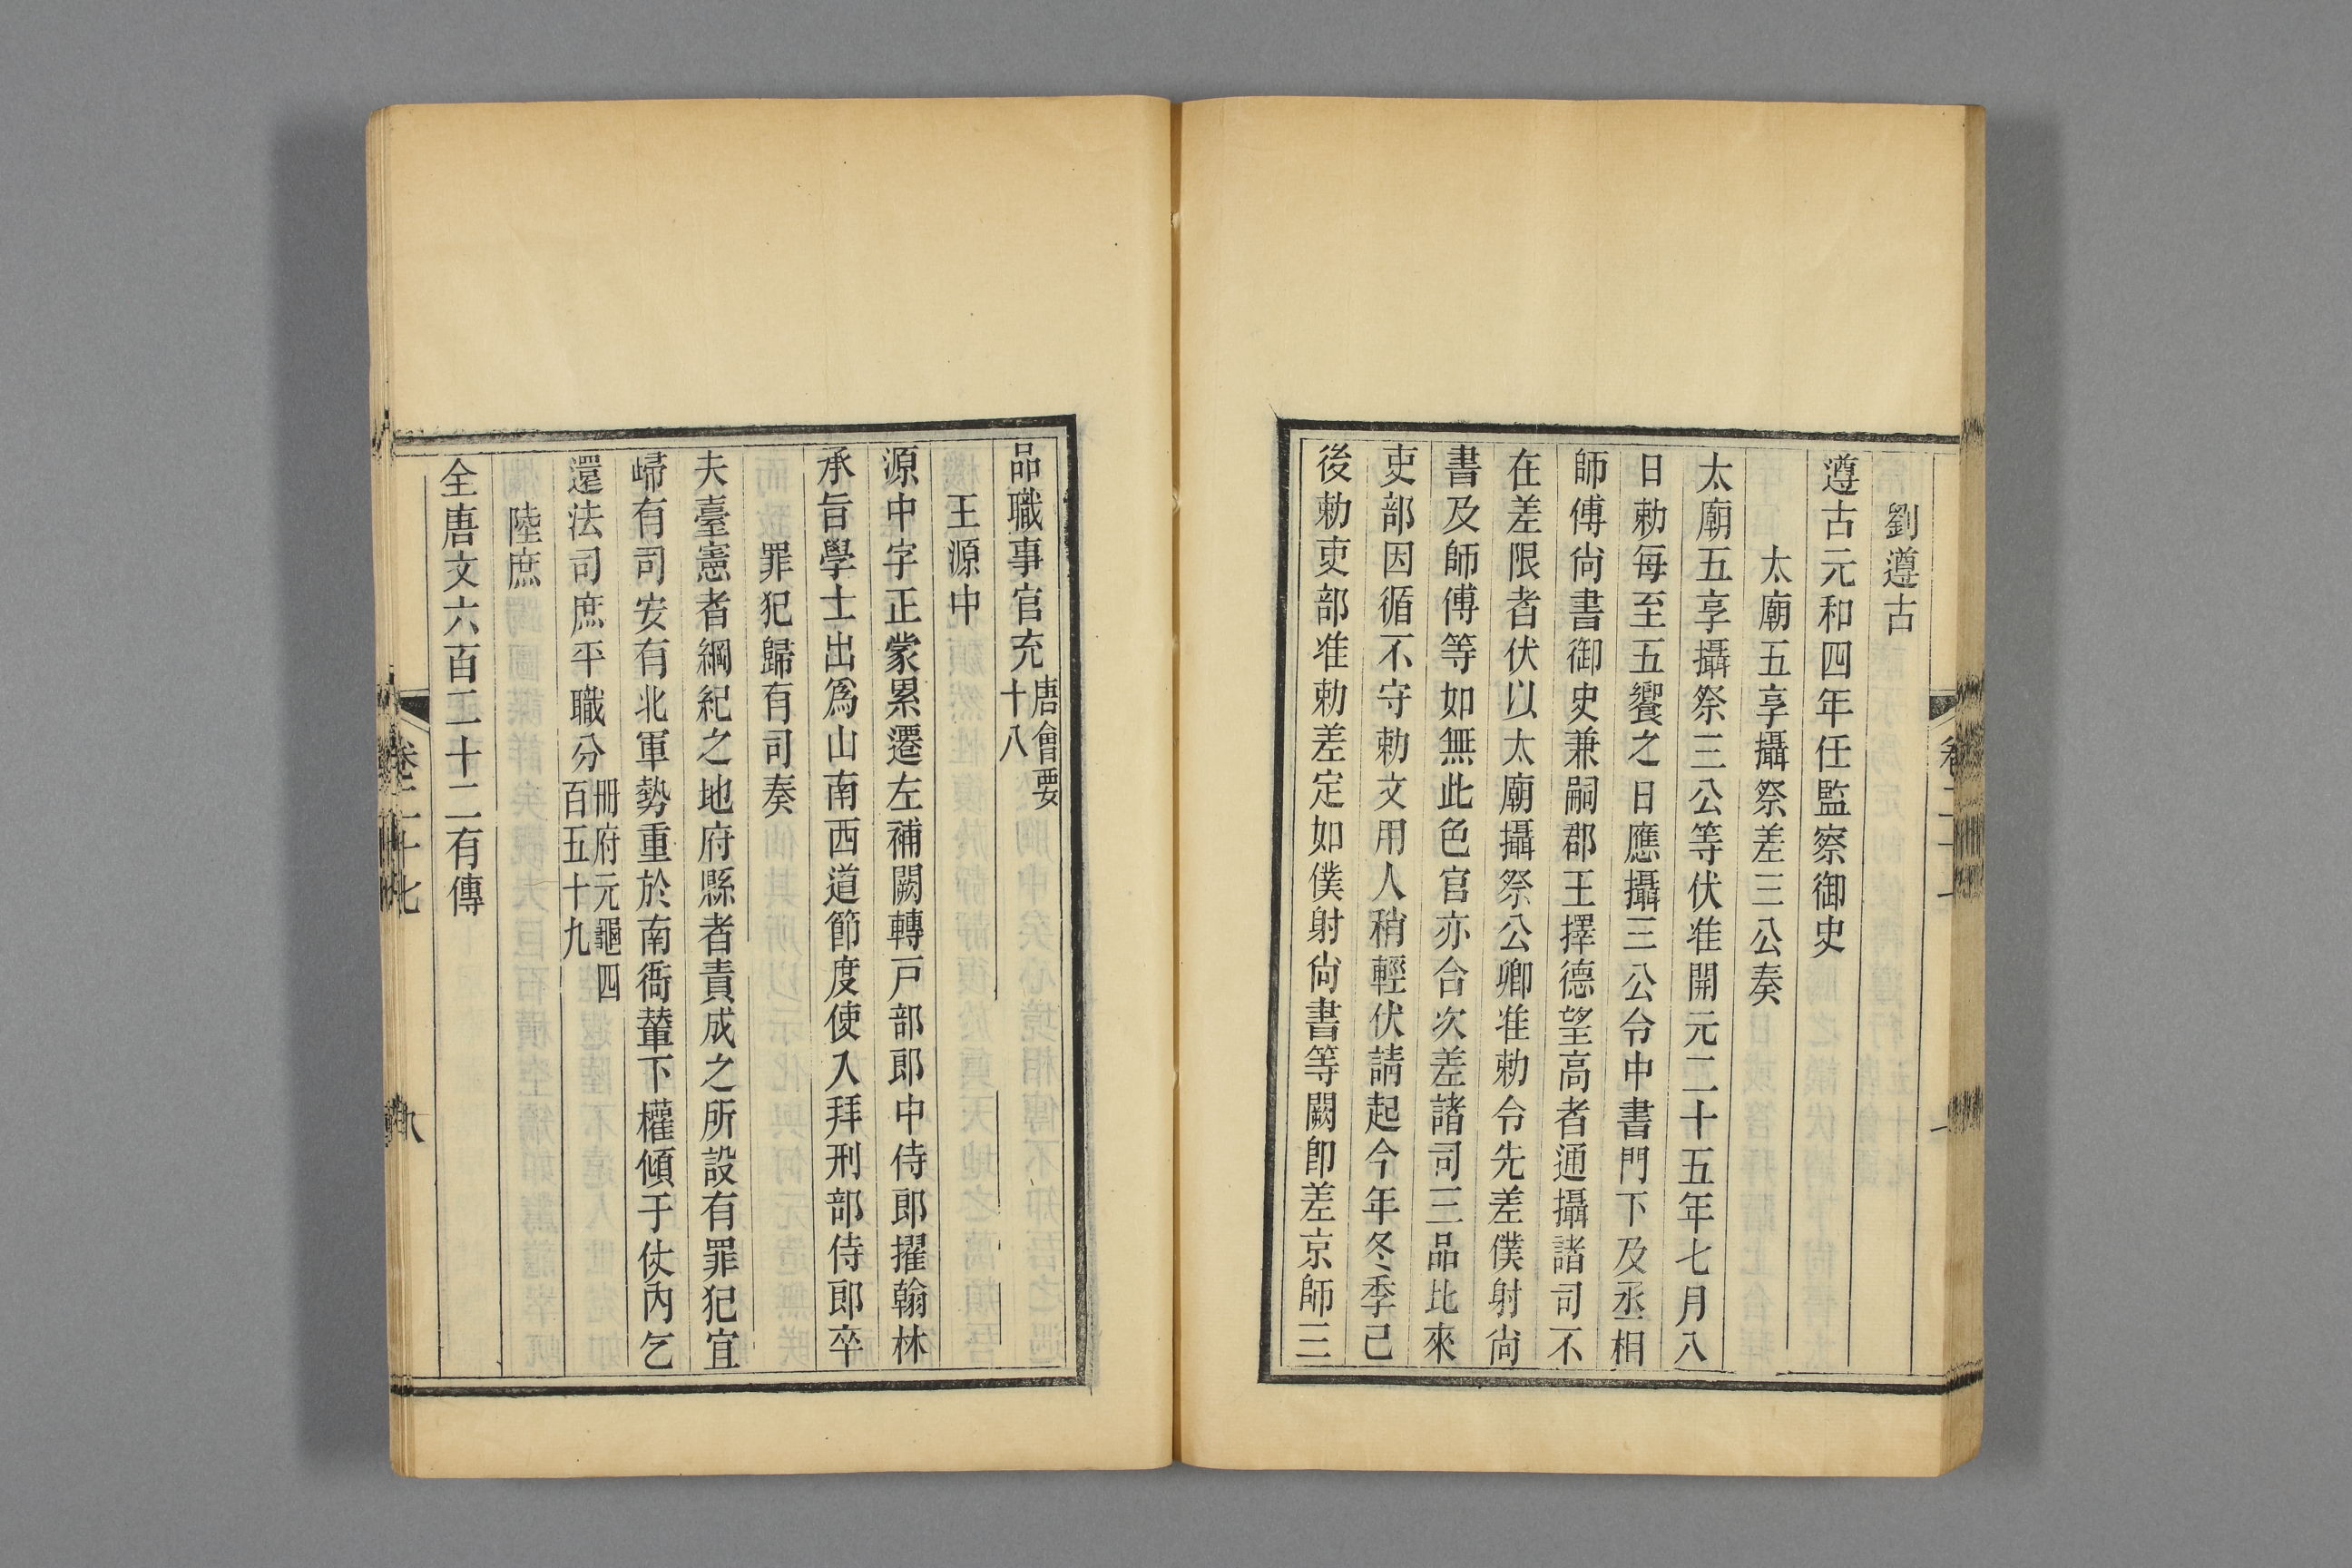 劉遵古
遵古元和四年任監察御史
太廟五享攝祭差三公奏
太廟五享攝祭三公等伏准開元二十五年七月八
日勅每至五饗之日應攝三公令中書門下及丞相
師傅尙書御史兼嗣郡王擇德望高者通攝諸司不
在差限者伏以太廟攝祭公卿准勅令先差僕射尙
書及師傅等如無此色官亦合次差諸司三品比來
吏部因循不守勅文用人稍輕伏請起今年冬季已
後勅吏部准勅差定如僕射尙書等闕卽差京師三
品職事官充唐會要
十八
王源中
源中字正蒙累遷左補闕轉戸部郎中侍郎擢翰林
承旨學士出爲山南西道節度使入拜刑部侍郎卒
罪犯歸有司奏
夫臺憲者綱紀之地府縣者責成之所設有罪犯宜
歸有司安有北軍勢重於南衙輦下權傾于仗內乞
還法司庶平職分冊府元龜四
百五十九
陸庶
全唐文六百二十二有傳
卷二十七